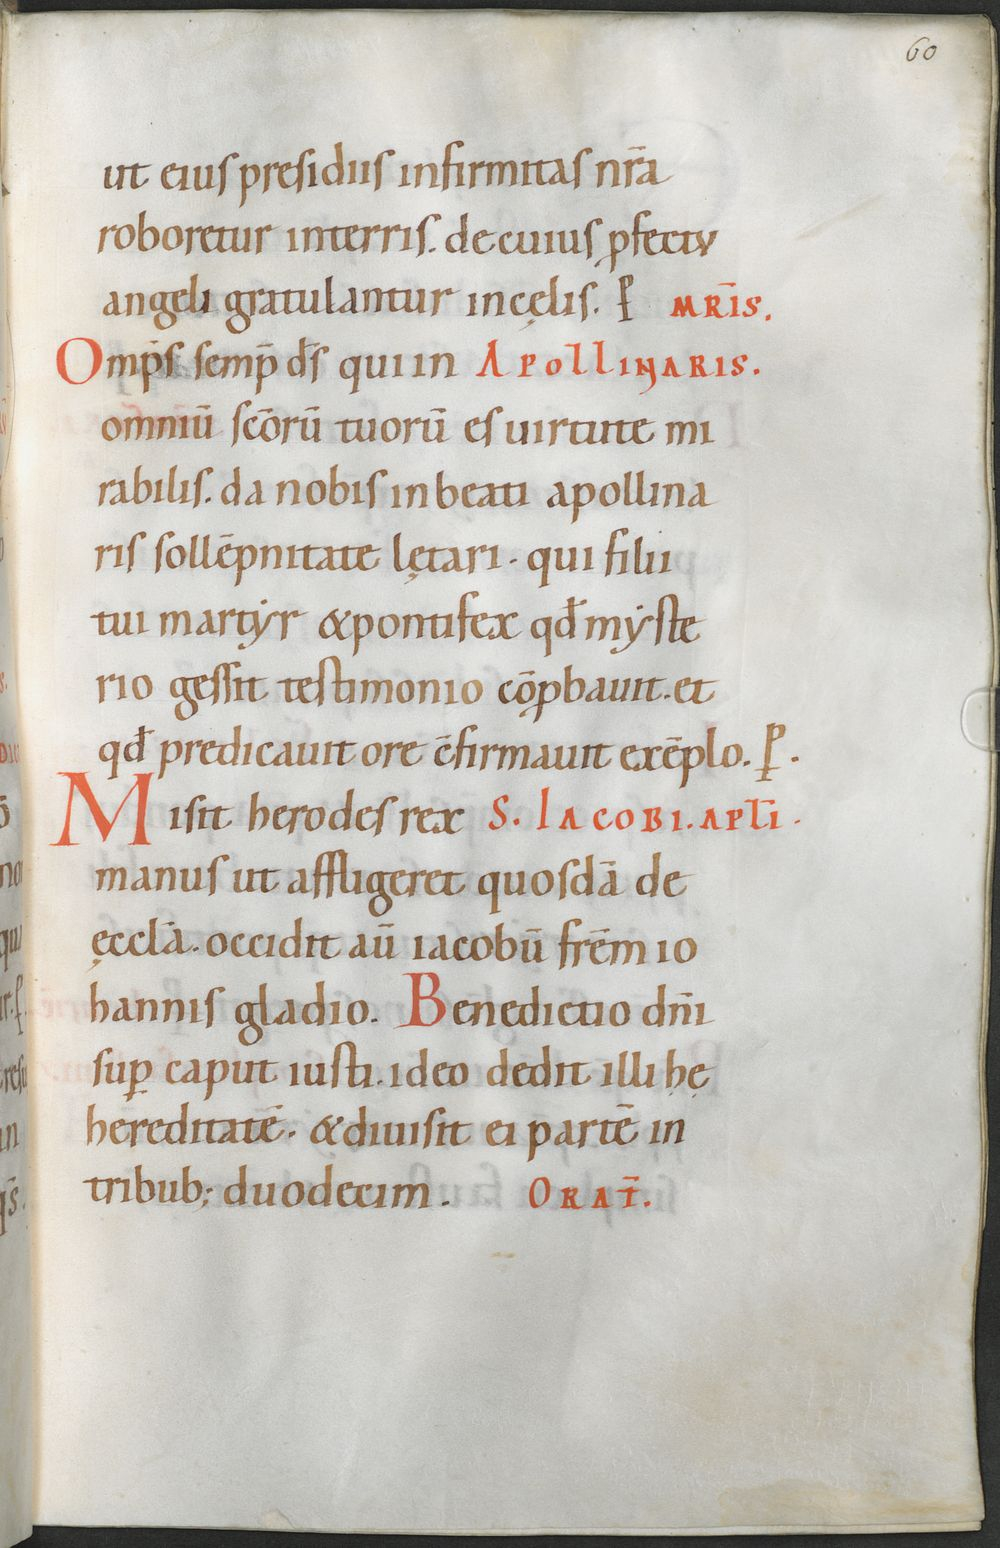 60
ut eius presidiis infirmitas nr̄a
roboretur interris. decuius ꝓfectu
angeli gratulantur incęlis. ꝑ MR̄IS.
Omp̄s semp̄ d̄s qui in APOLLINARIS.
omniū sc̄orū tuorū es uirtute mi
rabilis. da nobis inbeati apollina
ris sollēpnitate lętari. qui filii
tui martẏr &pontifex qđ mẏste
rio gessit testimonio cōꝓbauit. et
qđ predicauit ore c̄firmauit exēplo. ꝑ.
Misit herodes rex S. IACOBI. APLI.
manus ut affligeret quosdā de
ęccl̄a. occidit aū iacobū frēm io
hannis gladio. Benedictio dn̄i
suꝑ caput iusti. ideo dedit illi hę
hereditatē. &diuisit ei partē in
tribub; duodecim. ORAT̄.